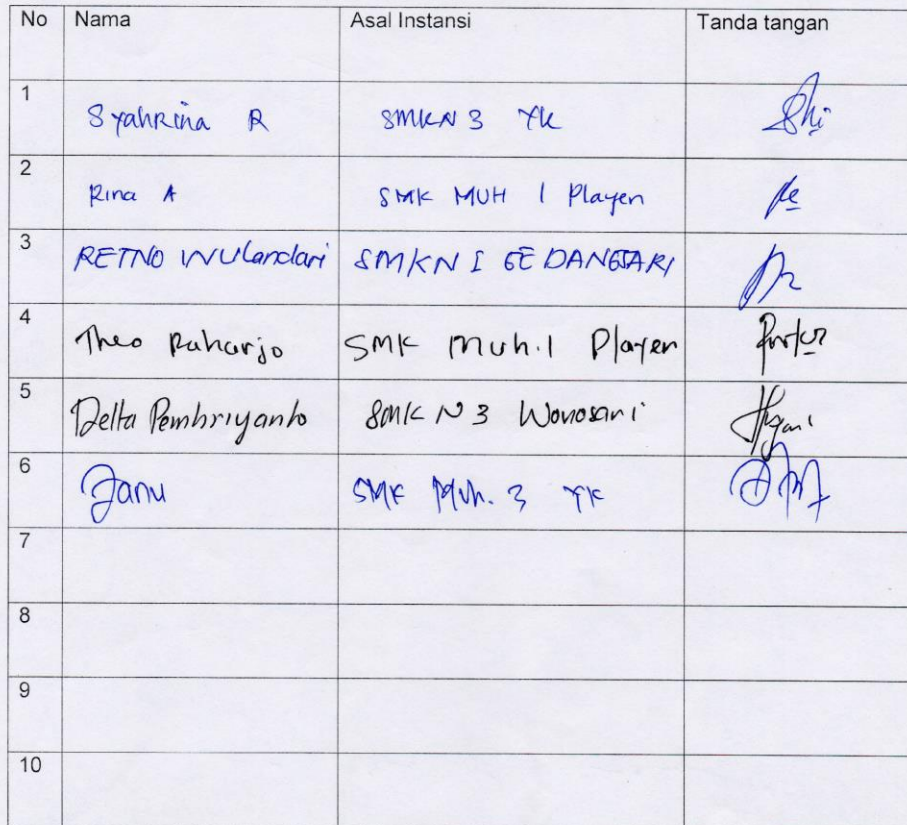 No Nama Asal Instansi Tanda tangan
1 Syahrina R SMKN 3 YK
2 Rina A SMK MUH 1 Playen
3 RETNO WULandari SMKN I GEDANGSARI
4 Theo Raharjo SMK Muh.1 Playen
5 Delta Pembriyanto SMK N 3 Wonosari
6 Janu SMK Muh. 3 YK
7
8
9
10